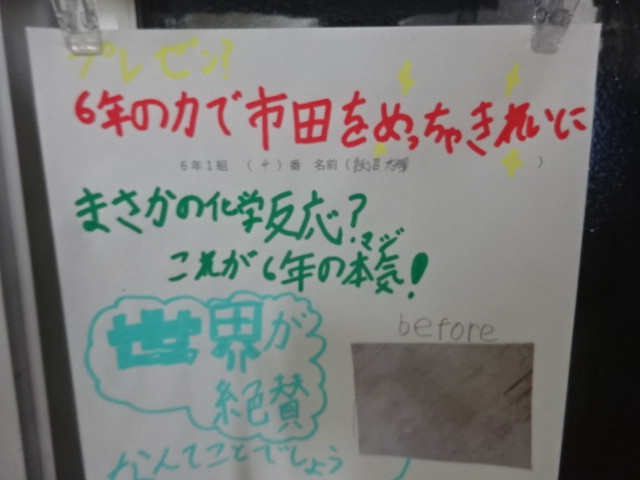 プレゼン?
6年の力で市田をめっちゃきれいに
6年1組 (十)番 名前(飯沼大
まさかの化学反応?
これが6年の本気!
マジ
世界が
絶賛
before
なんてことでしょう